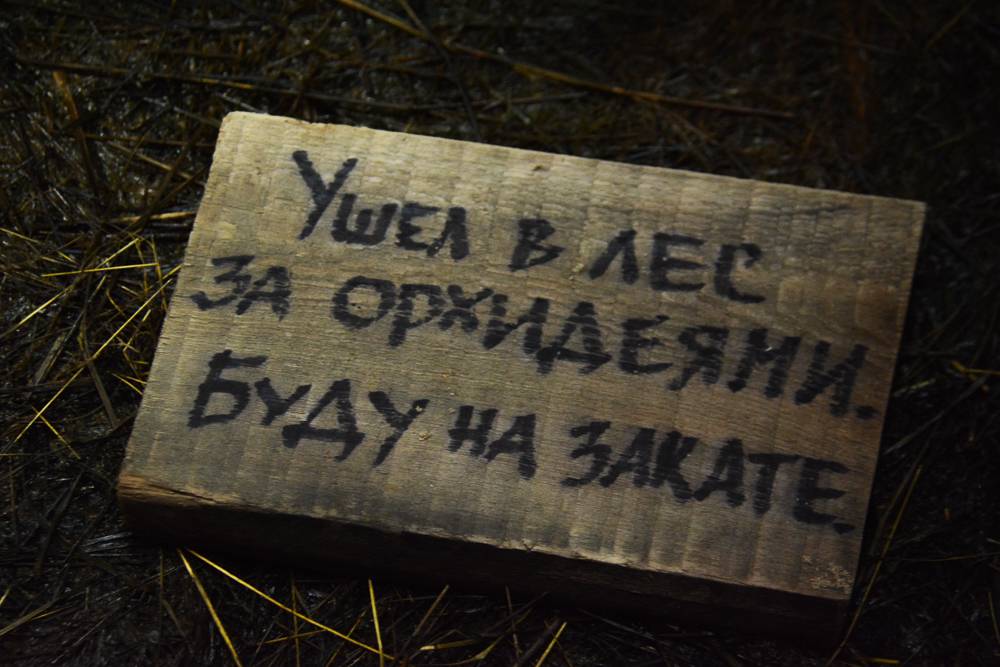 Ушел в лес
за орхидеями.
Буду на закате.